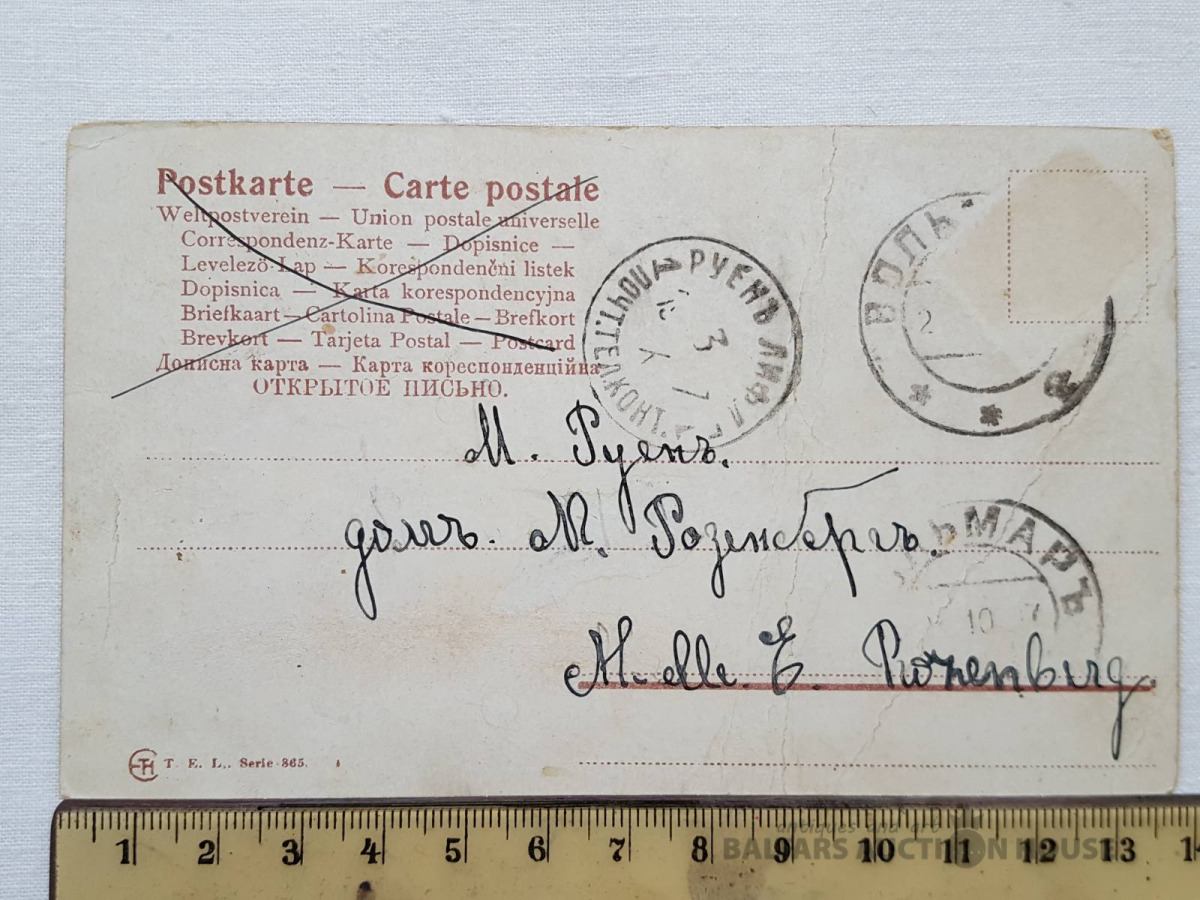 Postkarte — Carte postale
Weltpostverein — Union postale universelle
Correspondenz-Karte — Dopisnice —
Levelező-Lap — Korespondenční listek
Dopisnica — Karta korespondencyjna
Briefkaart — Cartolina Postale — Brefkort
Brevkort — Tarjeta Postal — Postcard
Дописна карта — Карта кореспонденційна
ОТКРЫТОЕ ПИСЬМО.
РУЕНЪ ЛИФЛ.
3
7
ВОЛЬ
2
М. Руенъ.
домъ. М. Розенбергъ.
ЬМАРЪ
10 7
M-elle. E. Rozenberg.
T. E. L. Serie 865.
1 2 3 4 5 6 7 8 9 10 11 12 13 14
antiques and art
BALTARS AUCTION HOUSE